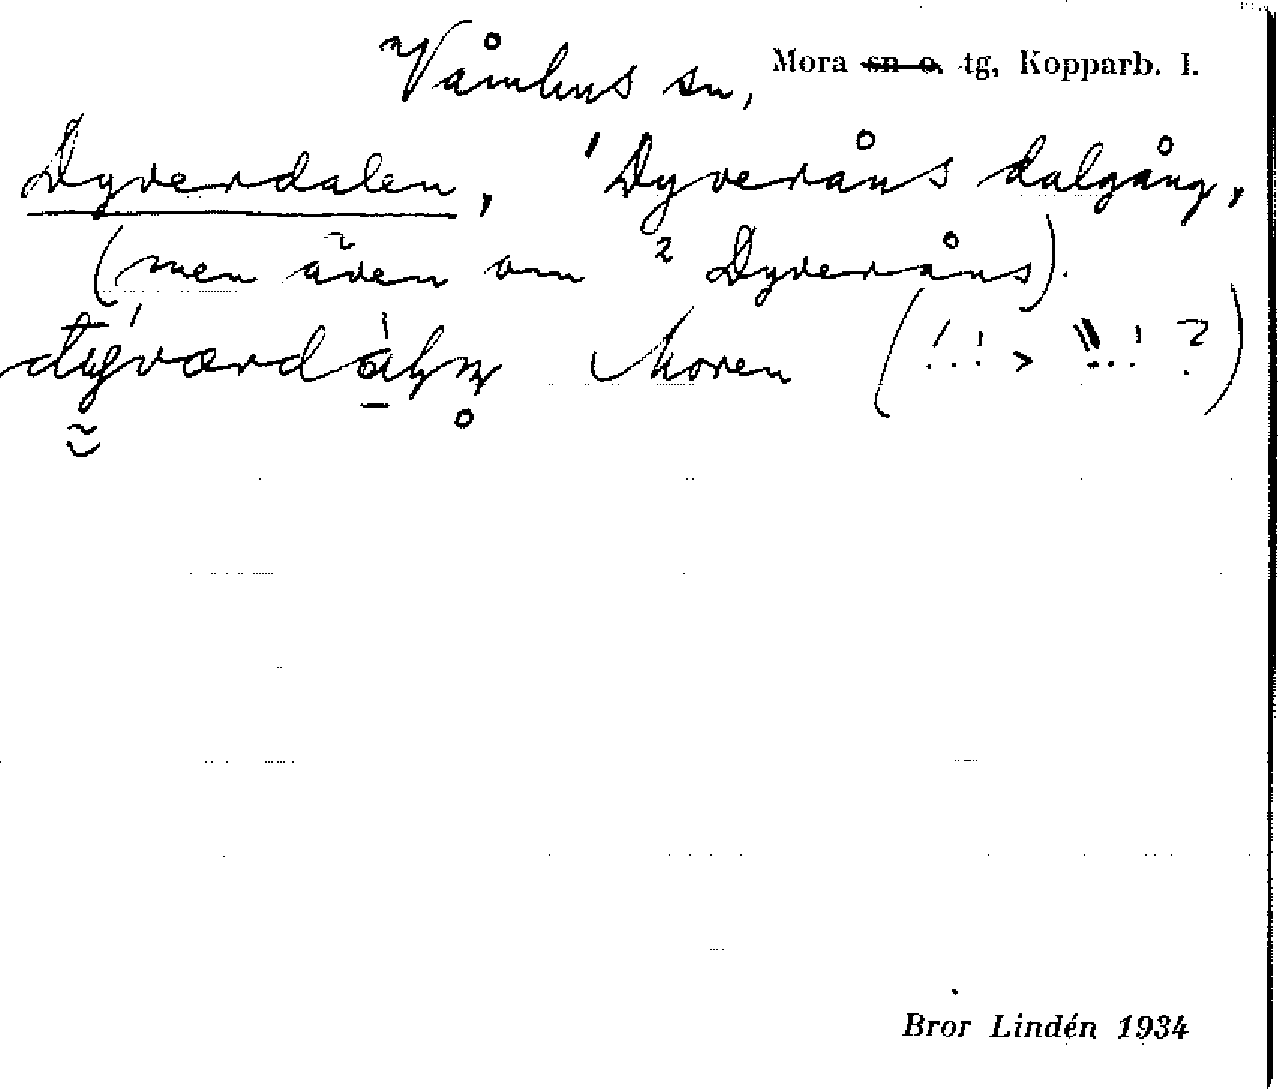 Våmhus sn, Mora sn o. tg, Kopparb. l.
Dyverdalen, ¹Dyveråns dalgång,
(men även om ² Dyveråns).
Moren (!..! > !..! ?)
Bror Lindén 1934